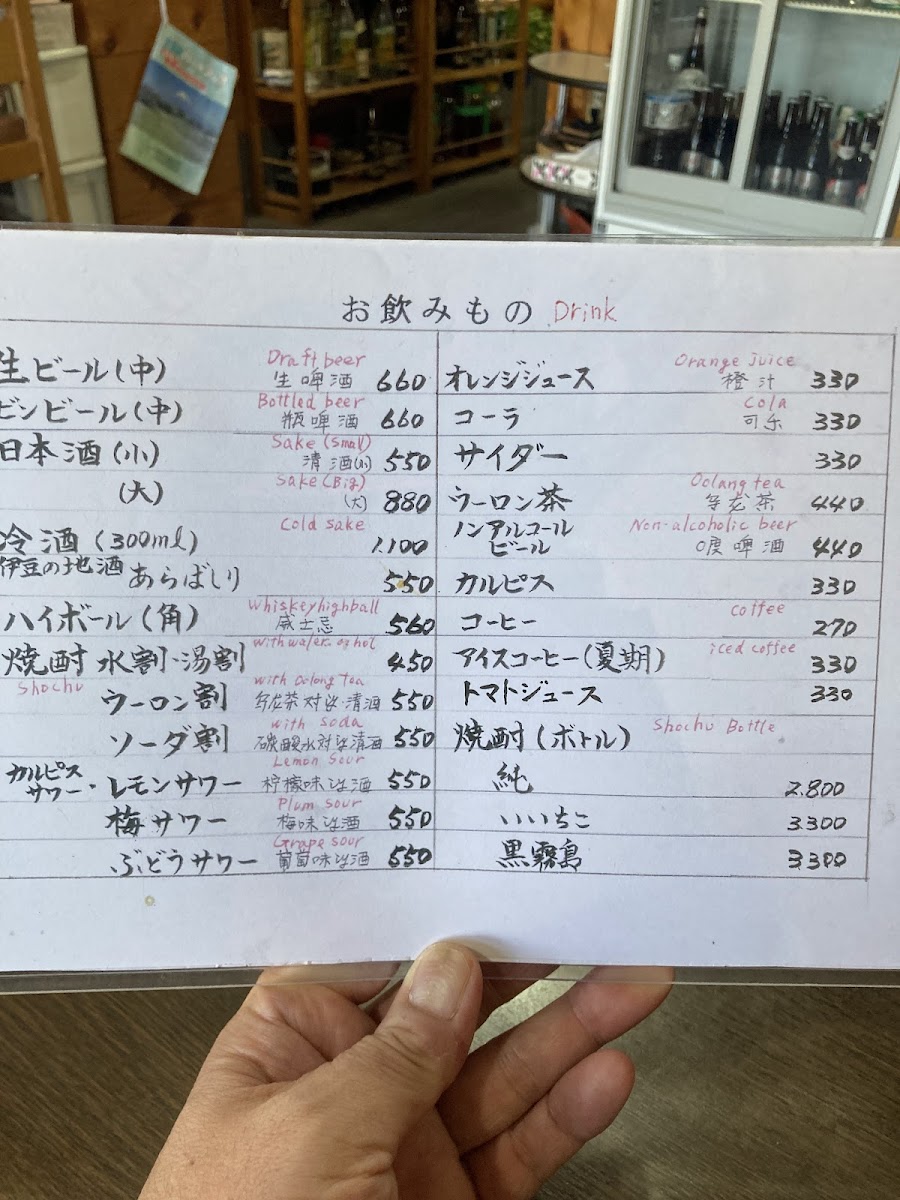 お飲みもの Drink
生ビール(中) Draft beer 生啤酒 660
ビンビール(中) Bottled beer 瓶啤酒 660
日本酒(小) Sake (Small) 清酒(小) 550
(大) Sake (Big) (大) 880
冷酒(300ml) Cold sake 1.100
伊豆の地酒 あらばしり 550
ハイボール(角) whiskey highball 威士忌 560
焼酎 水割・湯割 with water or hot 450
Shochu ウーロン割 with Oolong tea 乌龙茶对烧·清酒 550
ソーダ割 with soda 碳酸水对烧清酒 550
カルピスサワー・レモンサワー Lemon sour 柠檬味烧酒 550
梅サワー Plum sour 梅味烧酒 550
ぶどうサワー Grape sour 葡萄味烧酒 550
オレンジジュース Orange juice 橙汁 330
コーラ Cola 可乐 330
サイダー 330
ウーロン茶 Oolang tea 乌龙茶 440
ノンアルコールビール Non-alcoholic beer 0度啤酒 440
カルピス 330
コーヒー coffee 270
アイスコーヒー(夏期) iced coffee 330
トマトジュース 330
焼酎(ボトル) Shochu Bottle
純 2.800
いいちこ 3.300
黒霧島 3.300